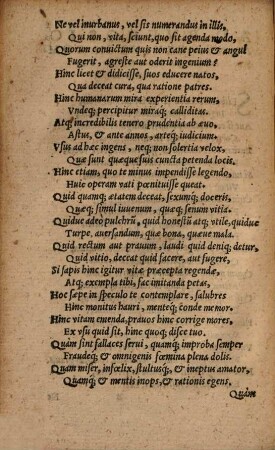 Ne vel inurbanus, vel sis numerandus in illis,
Qui non, vita, sciunt, quo sit agenda modo,
Quorum convictum quis non cane peius & angui
Fugerit, agreste aut oderit ingenium?
Hinc licet & didicisse, suos educere natos,
Qua deceat cura, qua ratione patres.
Hinc humanarum mira experientia rerum,
Vndeq; percipitur miraq; calliditas.
Atq; incredibilis tenero prudentia ab æuo,
Astus, & ante annos, arteq; iudicium.
Vsus ad hæc ingens, neq; non solertia velox,
Quæ sunt quæquæ suis cuncta petenda locis.
Hinc etiam, quo te minus impendisse legendo,
Huic operam vati pœnituisse queat.
Quid quamq; ætatem deceat, sexumq; doceris,
Quæq; simul iuuenum, quæq; senum vitia.
Quidue adeo pulchrũ, quid honestũ atq; vtile, quidue
Turpe, auersandum, quæ bona, quæue mala.
Quid rectum aut prauum, laudi quid deniq; detur,
Quid vitio, deceat quid facere, aut fugere,
Si sapis hinc igitur vitæ præcepta regendæ,
Atq; exempla tibi, fac imitanda petas,
Hoc sæpe in speculo te contemplare, salubres
Hinc monitus hauri, menteq; conde memor.
Hinc vitam emenda, prauos hinc corrige mores,
Ex vsu quid sit, hinc quoq; disce tuo.
Quàm sint fallaces serui, quamq; improba semper
Fraudeq; & omnigenis fœmina plena dolis.
Quàm miser, infœlix, stultusq;, & ineptus amator,
Quamq; & mentis inops, & rationis egens,
Quàm